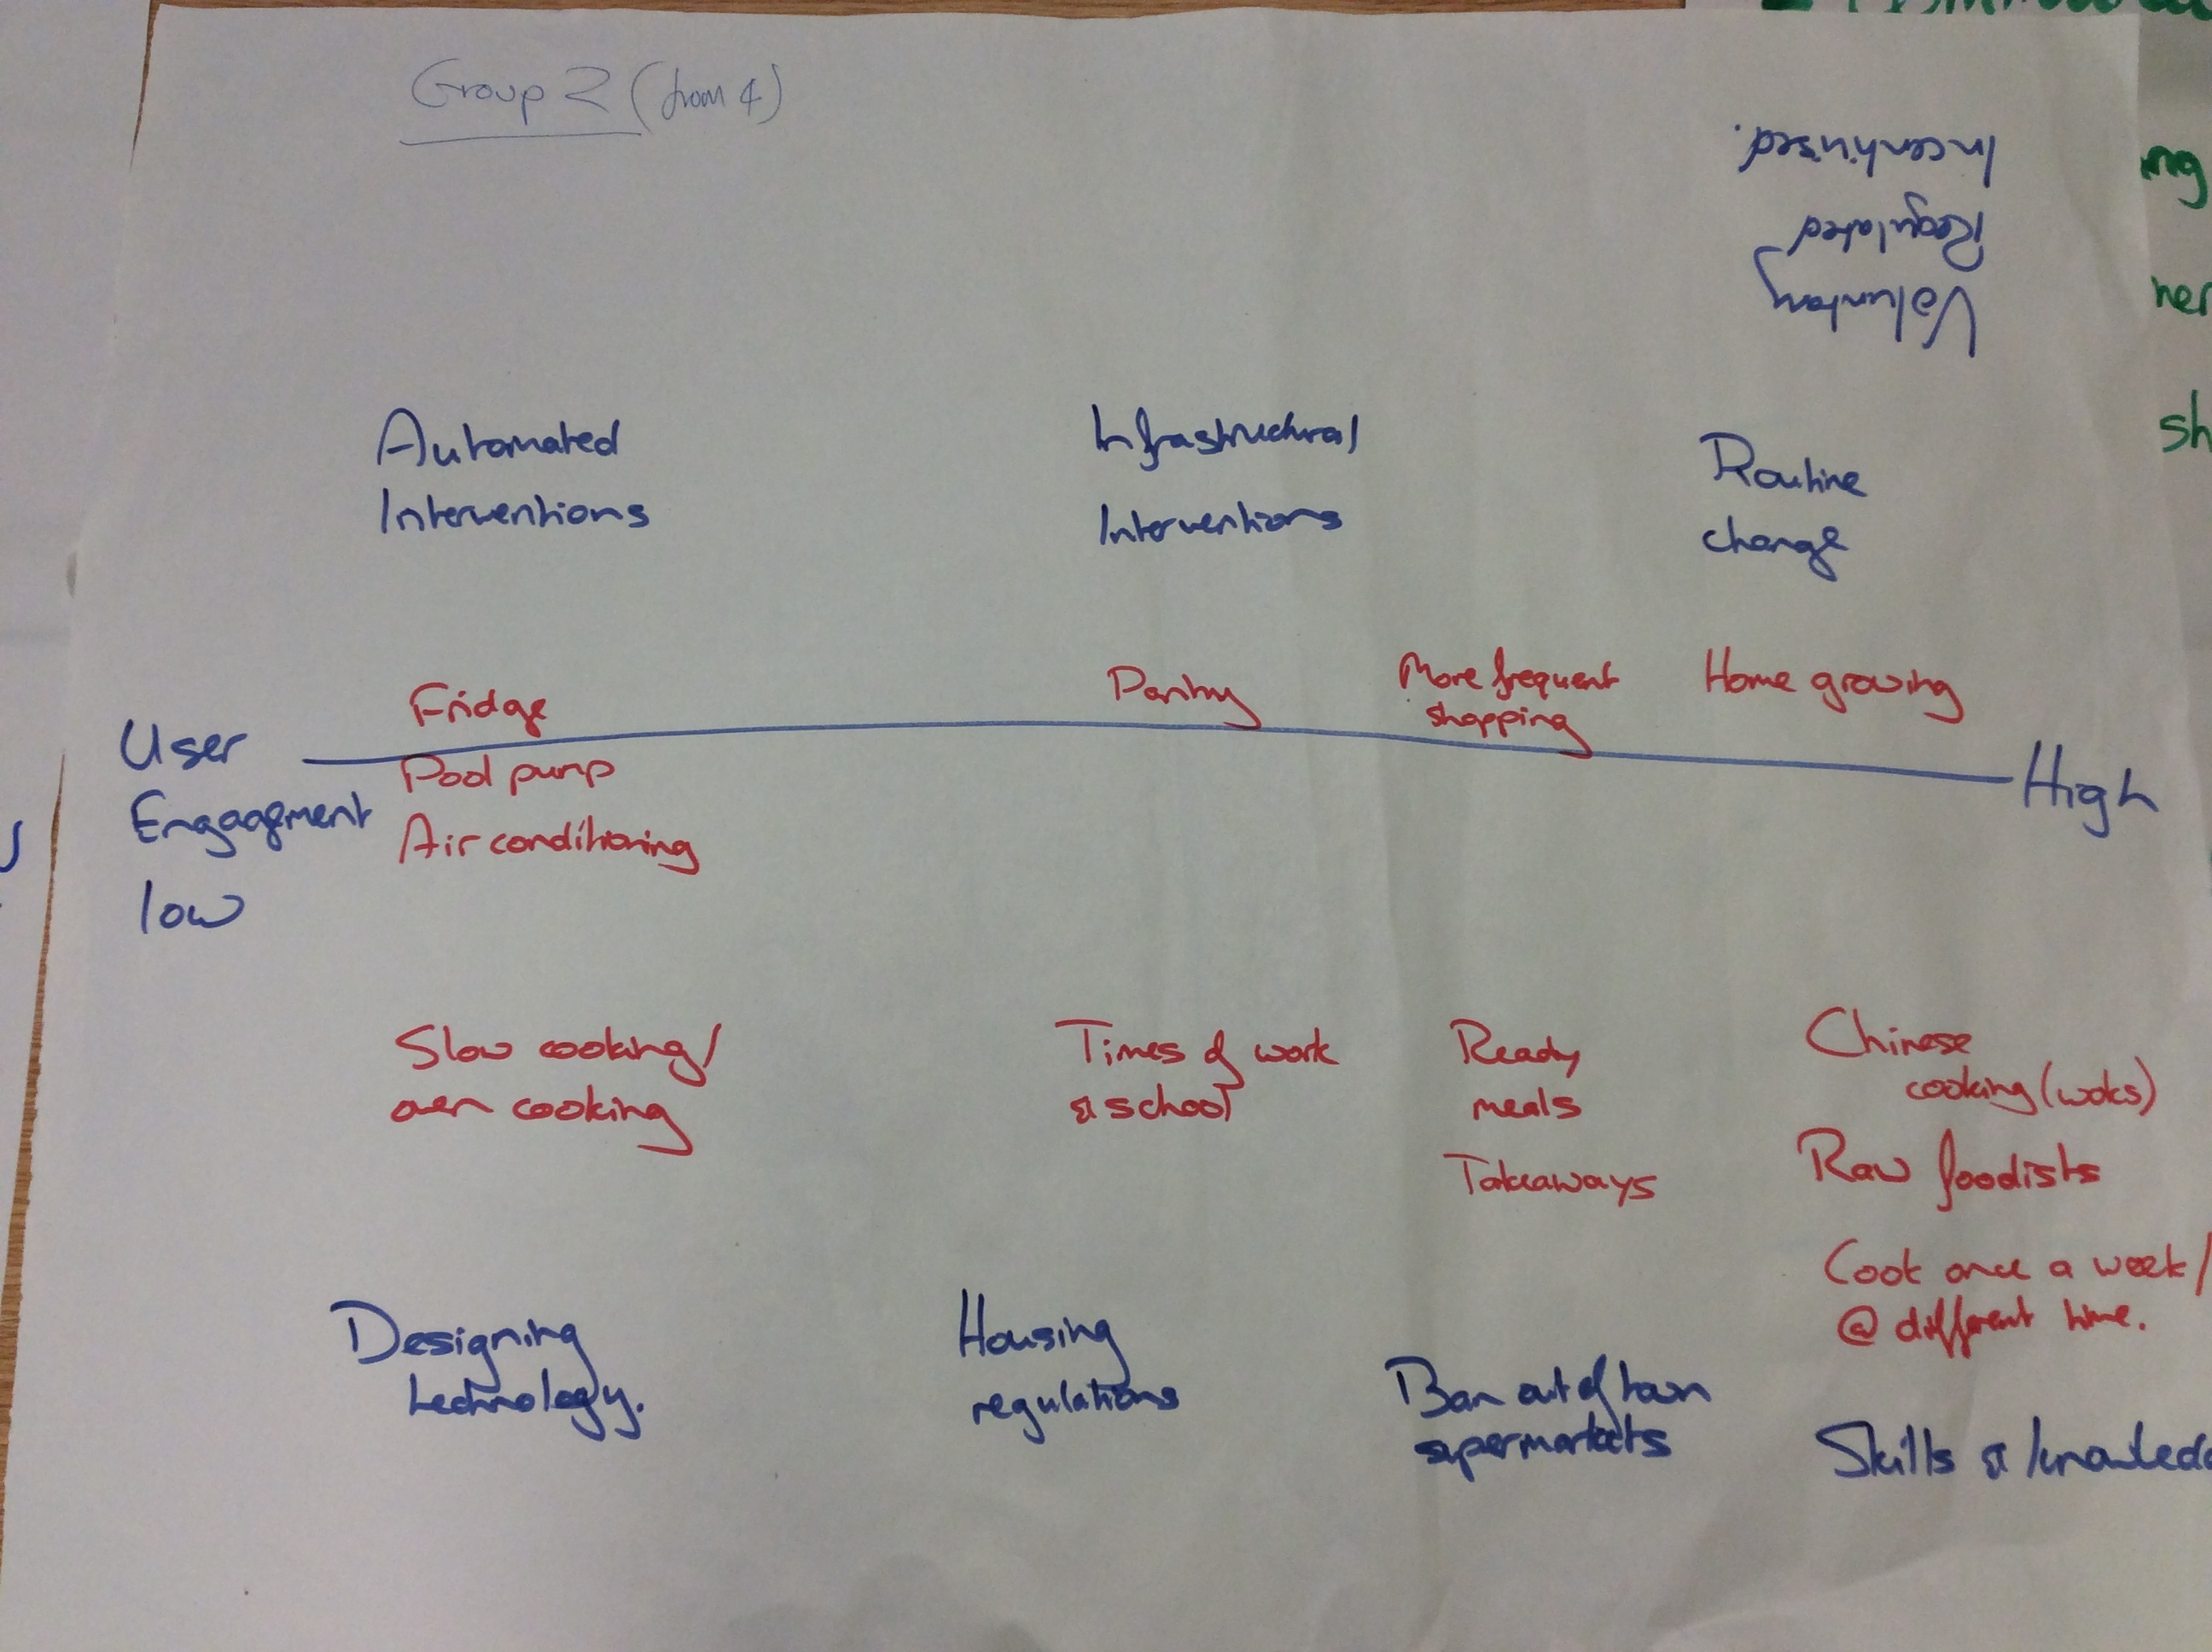 Group 2 (from 4)
Voluntary
Regulated
Incentivised.
Automated
Interventions
Infrastructural
Interventions
Routine
change
Fridge
Pantry
More frequent
shopping
Home growing
User
Engagement
low
High
Pool pump
Air conditioning
Slow cooking/
oven cooking
Times of work
& school
Ready
meals
Takeaways
Chinese
cooking (woks)
Raw foodists
Cook once a week/
@ different time.
Designing
technology.
Housing
regulations
Ban out of town
supermarkets
Skills &
ng
her
sh